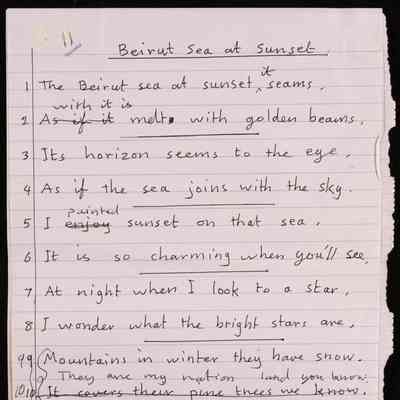 11
Beirut Sea at Sunset
it
1 The Beirut sea at sunset, seams,
with it is
2 As if it melt. with golden beams,
3 Its horizon seems to the eye,
4 As if the sea joins with the sky.
painted
5 I enjoy sunset on that sea,
6 It is so charming when you'll see,
7 At night when I look to a star,
8 I wonder what the bright stars are,
9 9 Mountains in winter they have snow.
They are my nation land you know
10 10 It covers their pine trees we know.